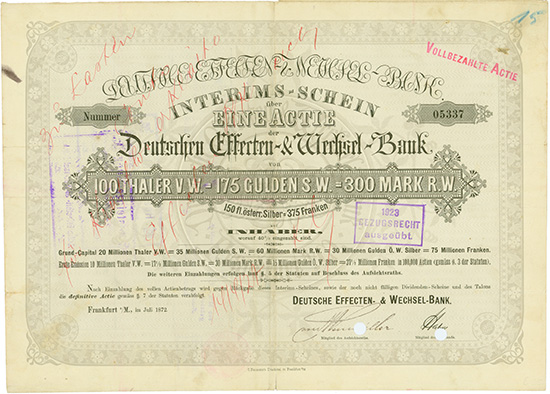 15
VOLLBEZAHLTE ACTIE
DEUTSCHE EFFECTEN- & WECHSEL-BANK.
INTERIMS-SCHEIN
Nummer
über
05337
EINE ACTIE
der
Deutschen Effecten-& Wechsel-Bank
von
100 THALER V.W. = 175 GULDEN S.W. = 300 MARK R.W.
150 fl. österr. Silber = 375 Franken
auf
INHABER,
worauf 40% eingezahlt sind.
1923
BEZUGSRECHT
ausgeübt.
Grund-Capital 20 Millionen Thaler V.W. = 35 Millionen Gulden S.W. = 60 Millionen Mark R.W. = 30 Millionen Gulden Ö.W. Silber = 75 Millionen Franken.
Erste Emission 10 Millionen Thaler V.W. = 17½ Millionen Gulden S.W. = 30 Millionen Mark R.W. = 15 Millionen Gulden Ö.W. Silber = 37½ Millionen Franken in 100,000 Actien (gemäss § 3 der Statuten).
Die weiteren Einzahlungen erfolgen laut § 5 der Statuten auf Beschluss des Aufsichtsraths.
Nach Einzahlung des vollen Actienbetrags wird gegen Rückgabe dieses Interims-Scheines, sowie der noch nicht fälligen Dividenden-Scheine und des Talons
die definitive Actie gemäss § 7 der Statuten verabfolgt.
DEUTSCHE EFFECTEN- & WECHSEL-BANK.
Frankfurt a/M., im Juli 1872.
Mitglied des Aufsichtsraths.
Mitglied des Vorstandes.